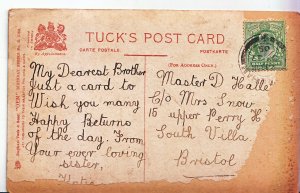 TUCK'S POST CARD
CARTE POSTALE.
POSTKARTE
(FOR ADDRESS ONLY.)
By Appointment.
My Dearest Brother
Just a card to
Wish you many
Happy Returns
of the day. From
Your ever loving
sister,
Master D Hatle
C/o Mrs Snow
15 upper Perry H
South Villa.
Bristol